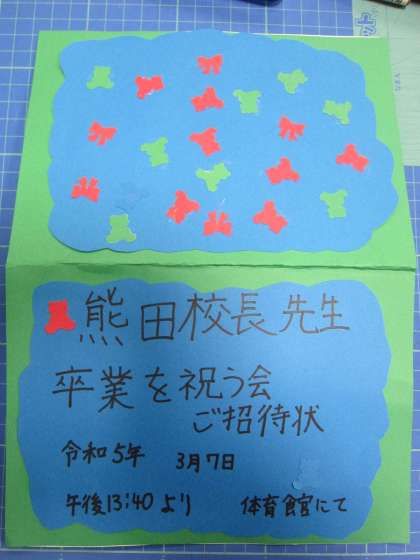 熊田校長先生
卒業を祝う会
ご招待状
令和5年 3月7日
午後13:40より 体育館にて